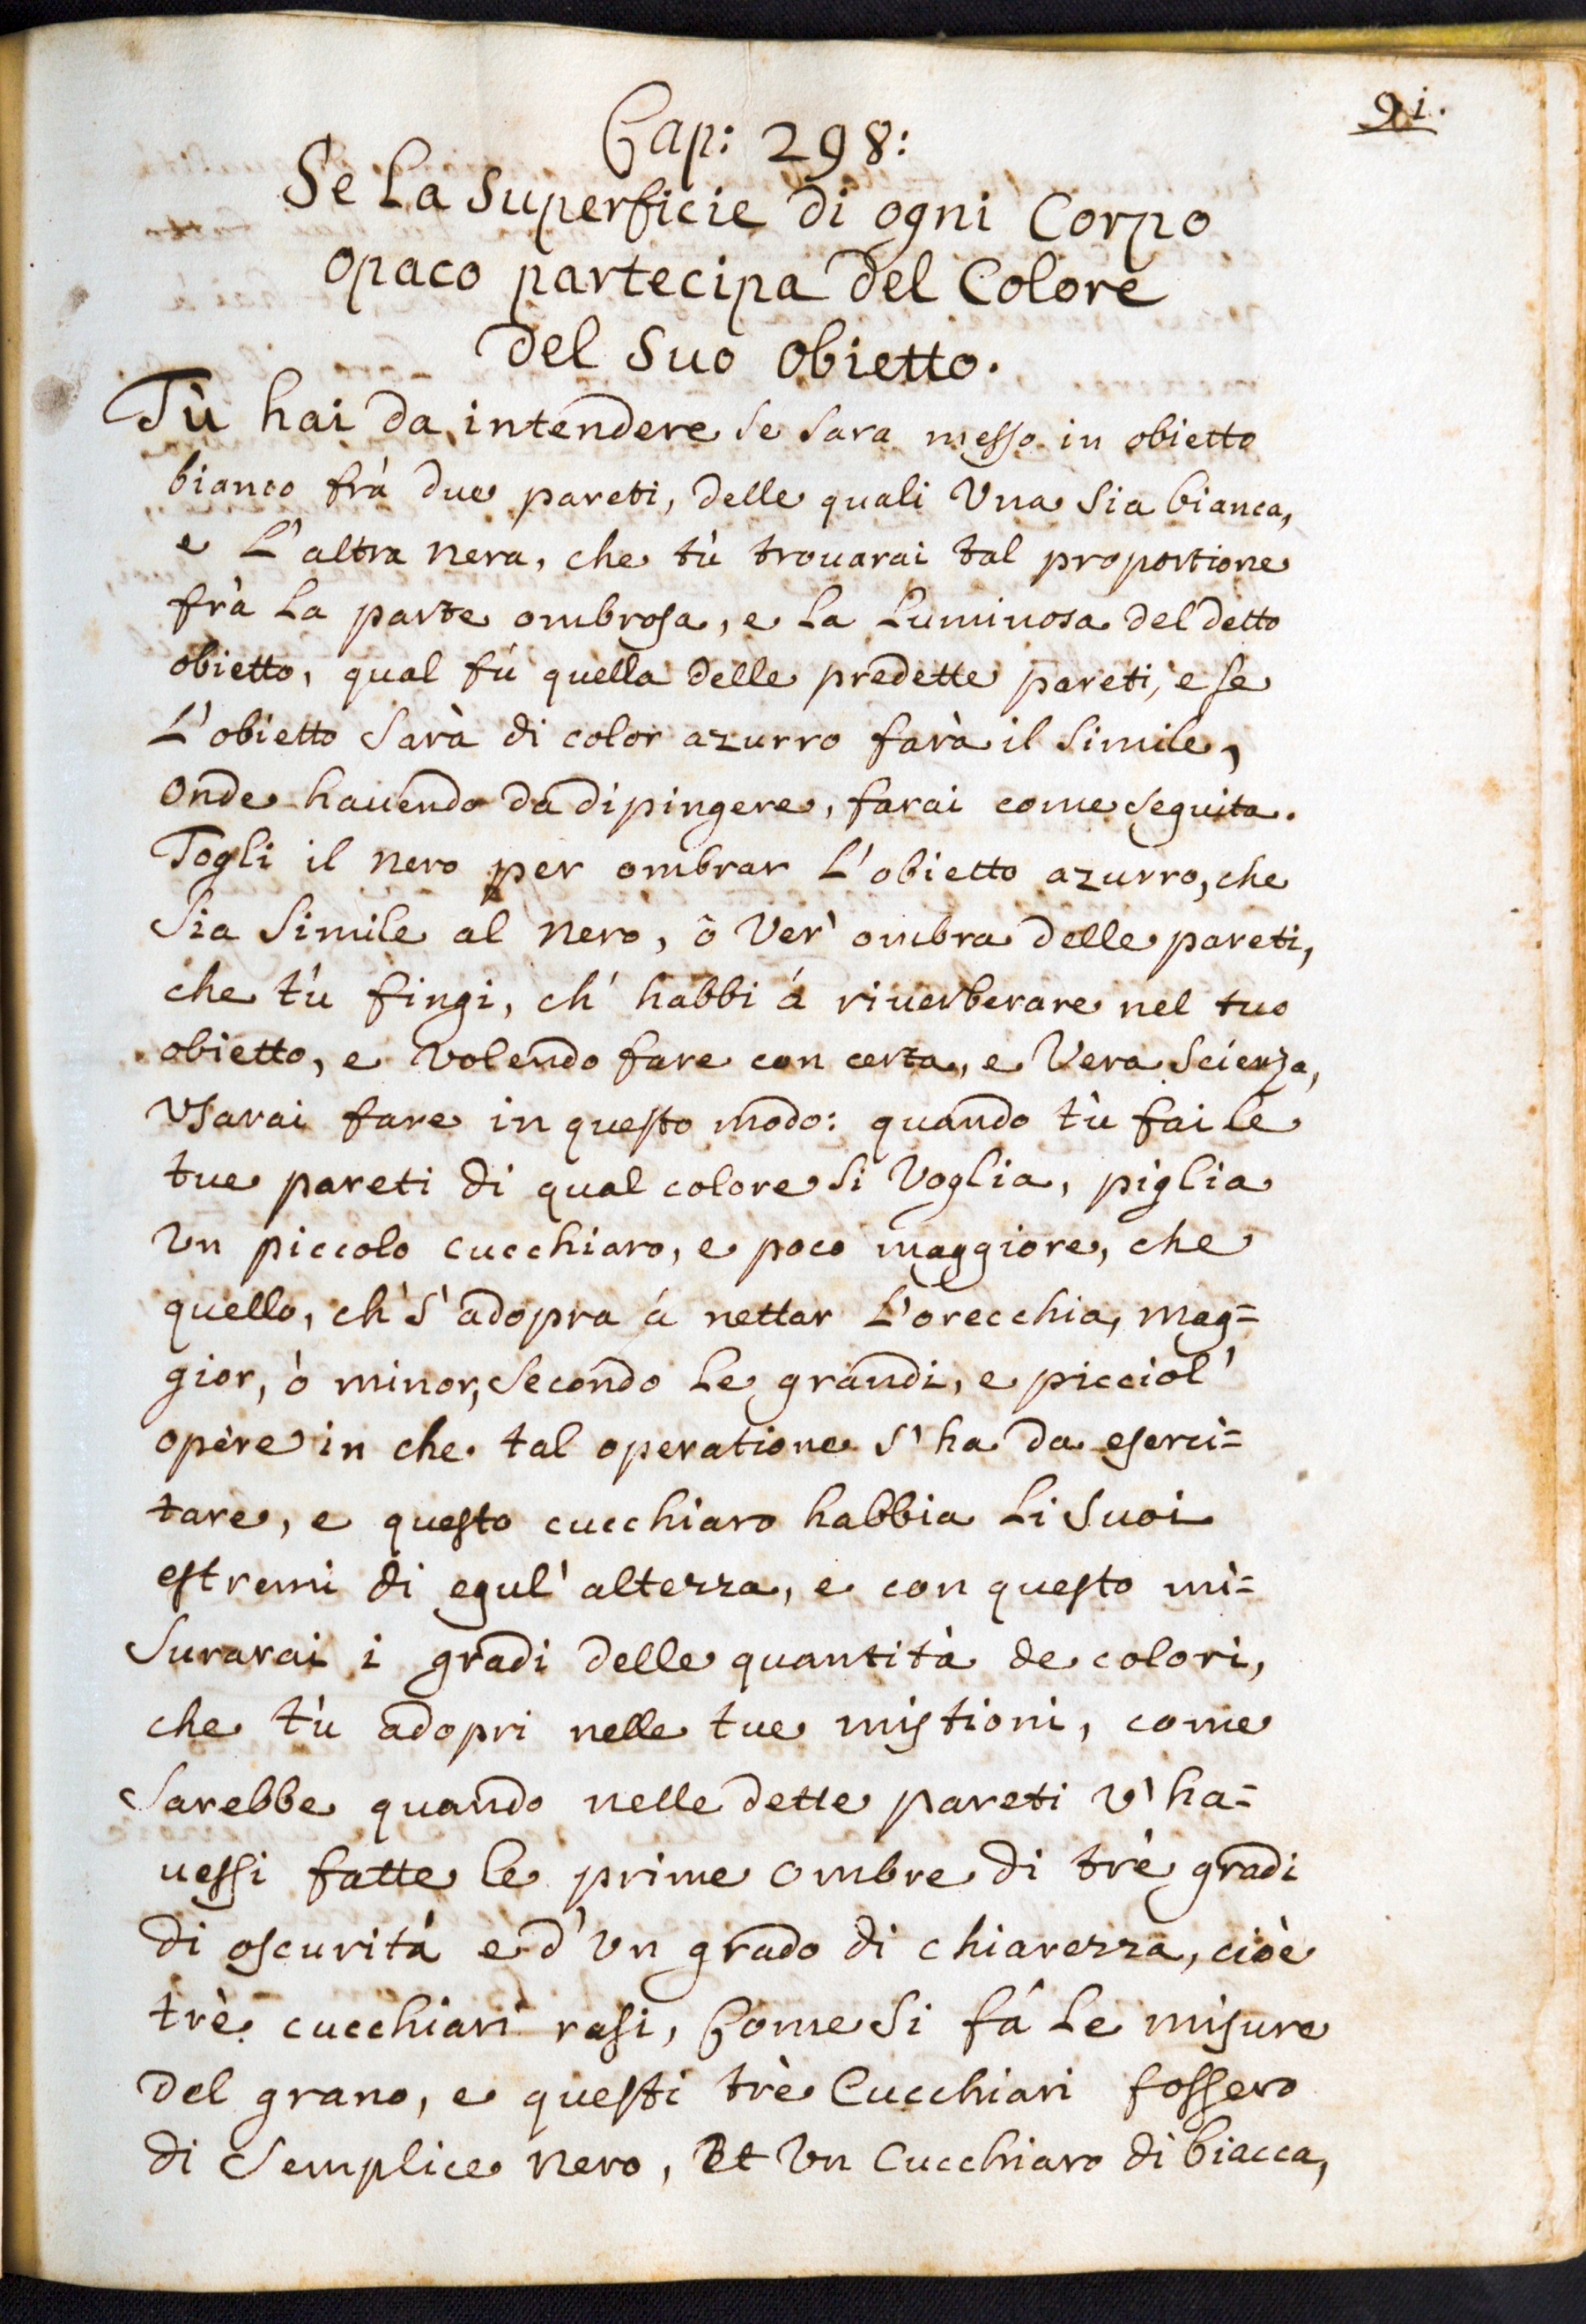 91.
Cap: 298:
Se La superficie di ogni Corpo
opaco partecipa del Colore
del suo obietto.
Tù hai da intendere se sara messo in obietto
bianco frà due pareti, delle quali Vna sia bianca,
e L'altra nera, che tù trouarai tal proportione
frà La parte ombrosa, e La Luminosa del detto
obietto, qual fù quella delle predette pareti, e se
L'obietto sarà di color azurro farà il simile,
onde hauendo da dipingere, farai come seguita.
Togli il nero per ombrar L'obietto azurro, che
sia simile al nero, ò ver' ombra delle pareti,
che tù fingi, ch' habbi á riuerberare nel tuo
obietto, e volendo fare con certa, e Vera scienza,
vsarai fare in questo modo: quando tù fai le
tue pareti di qual colore si Voglia, piglia
vn piccolo cucchiaro, e poco maggiore, che
quello, ch' s' adopra á nettar L'orecchia, mag=
gior, ò minor, secondo Le grandi, e picciol'
opere in che tal operatione s' ha da eserci=
tare, e questo cucchiaro habbia Li suoi
estremi di egul' altezza, e con questo mi=
surarai i gradi delle quantità de colori,
che tù adopri nelle tue mistioni, come
sarebbe quando nelle dette pareti v' ha=
uessi fatte le prime ombre di trè gradi
di oscurità e d' vn grado di chiarezza, cioè
trè cucchiari rasi, Come si fá Le misure
del grano, e questi trè Cucchiari fossero
di semplice nero, Et vn Cucchiaro di biacca,